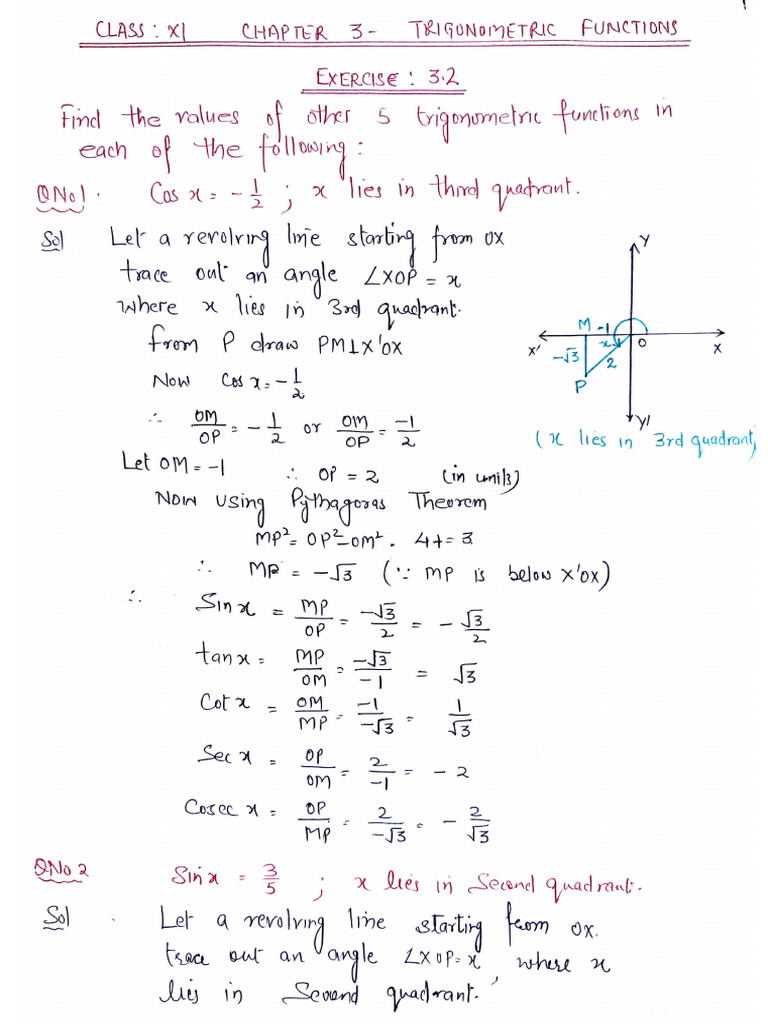 CLASS: XI CHAPTER 3- TRIGONOMETRIC FUNCTIONS
EXERCISE: 3.2
Find the values of other 5 trigonometric functions in
each of the following:
QNo1. Cos x = -1/2 ; x lies in third quadrant.
Sol Let a revolving line starting from OX
trace out an angle ∠XOP = x
where x lies in 3rd quadrant.
from P draw PM⊥X'OX
Now Cos x = -1/2
∴ OM/OP = -1/2 or OM/OP = -1/2
Let OM = -1 ∴ OP = 2 (in units)
Now using Pythagoras Theorem
MP² = OP² - OM². 4+ = 3
∴ MP = -√3 (∵ MP is below X'OX)
∴ Sin x = MP/OP = -√3/2 = -√3/2
tan x = MP/OM = -√3/-1 = √3
Cot x = OM/MP = -1/-√3 = 1/√3
Sec x = OP/OM = 2/-1 = -2
Cosec x = OP/MP = 2/-√3 = -2/√3
Y
M -1
X' -√3 x O X
2
P
Y'
(x lies in 3rd quadrant)
QNo 2 Sin x = 3/5 ; x lies in Second quadrant.
Sol . Let a revolving line starting from OX.
trace out an angle ∠XOP = x, where x
lies in Second quadrant.